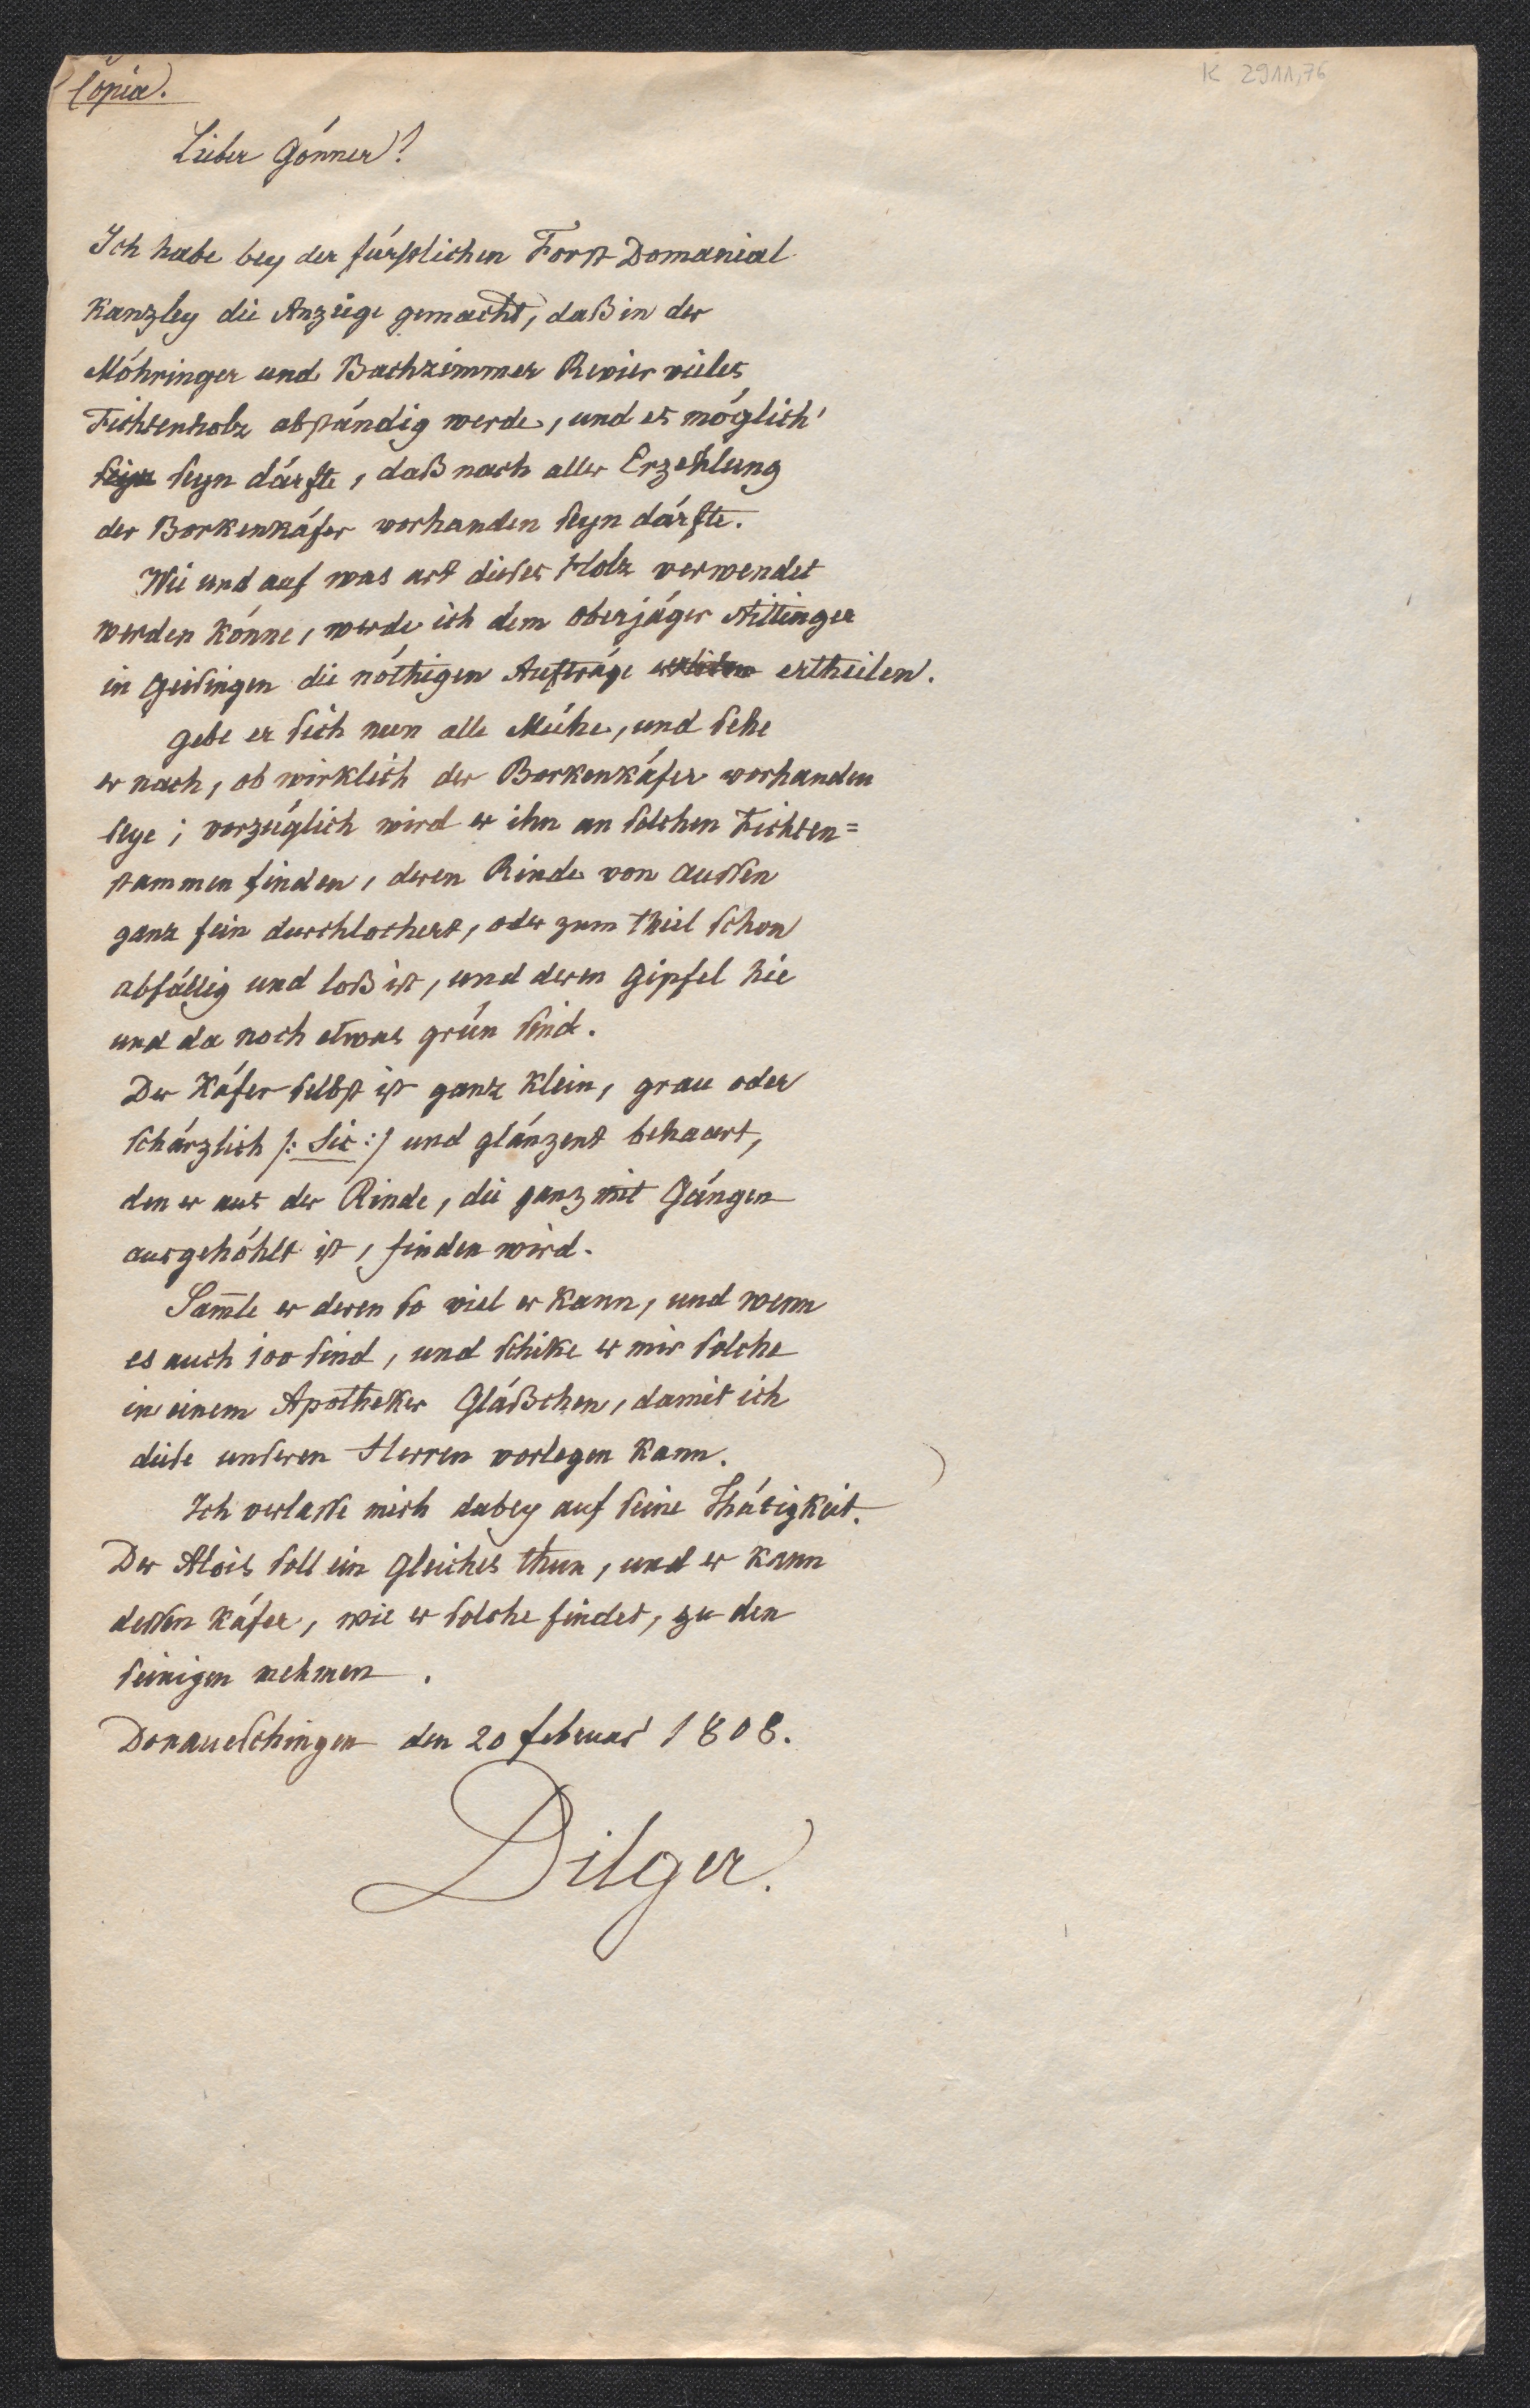 Copia.
K 2911,76
Lieber Gönner!
Ich habe bey der fürstlichen Forst Domanial
Kanzley die Anzeige gemacht, daß in der
Möhringer und Bachzimmer Revier vieles
Fichtenholz abständig werde, und es möglich
seyn dárfte, daß nach aller Erzehlung
der Borkenkäfer vorhanden seyn dárfte.
Wie und auf was art dieses Holz verwendet
werden könne, werde ich dem oberjäger
in Geisingen die nöthigen Aufträge ertheilen.
Gebe er sich nun alle Mühe, und sehe
er nach, ob wirklich der Borkenkäfer vorhanden
seye; vorzüglich wird er ihn an solchen Fichten=
stammen finden, deren Rinde von aussen
ganz fein durchlochert, oder zum theil schon
abfällig und loß ist, und deren Gipfel hie
und da noch etwas grün sind.
Der Käfer selbst ist ganz klein, grau oder
schärzlich /: Sic :/ und glänzent behaart,
den er aus der Rinde, die ganz mit Gängen
ausgehöhlt ist, finden wird.
Sam̅le er deren so viel er kann, und wenn
es auch 100 sind, und schike er mir solche
in einem Apotheker Gläßchen, damit ich
diese unseren Herren vorlegen kann.
Ich verlasse mich dabey auf seine Thätigkeit.
Der Alois soll ein gleiches thun, und er kann
dessen käfer, wie er solche findet, zu den
seinigen nehmen.
Donaueschingen den 20 februar 1808.
Dilger.